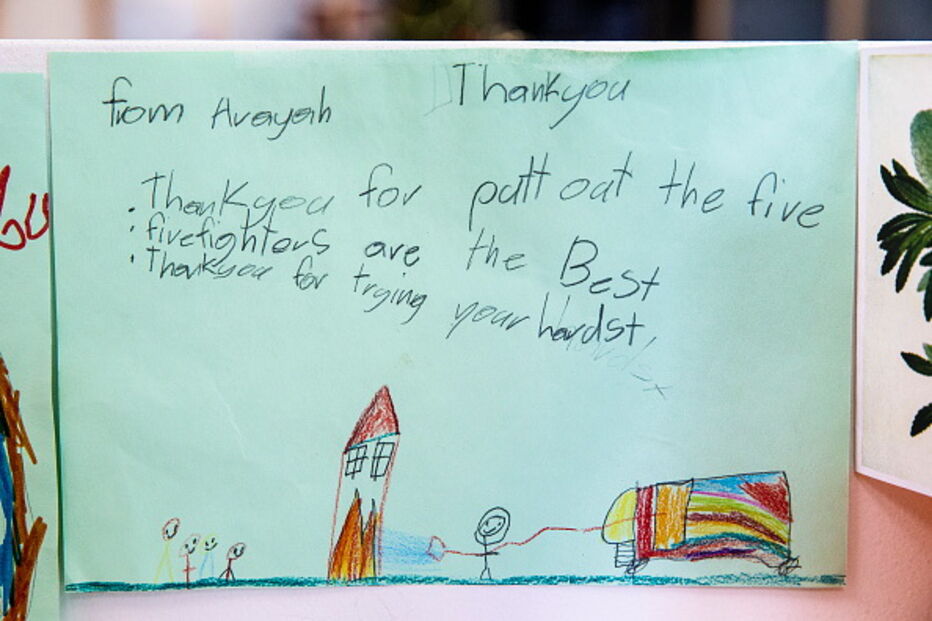 from Avayah Thankyou
. Thankyou for putt out the five
. fivefighters are the Best
. Thankyou for trying your hardst